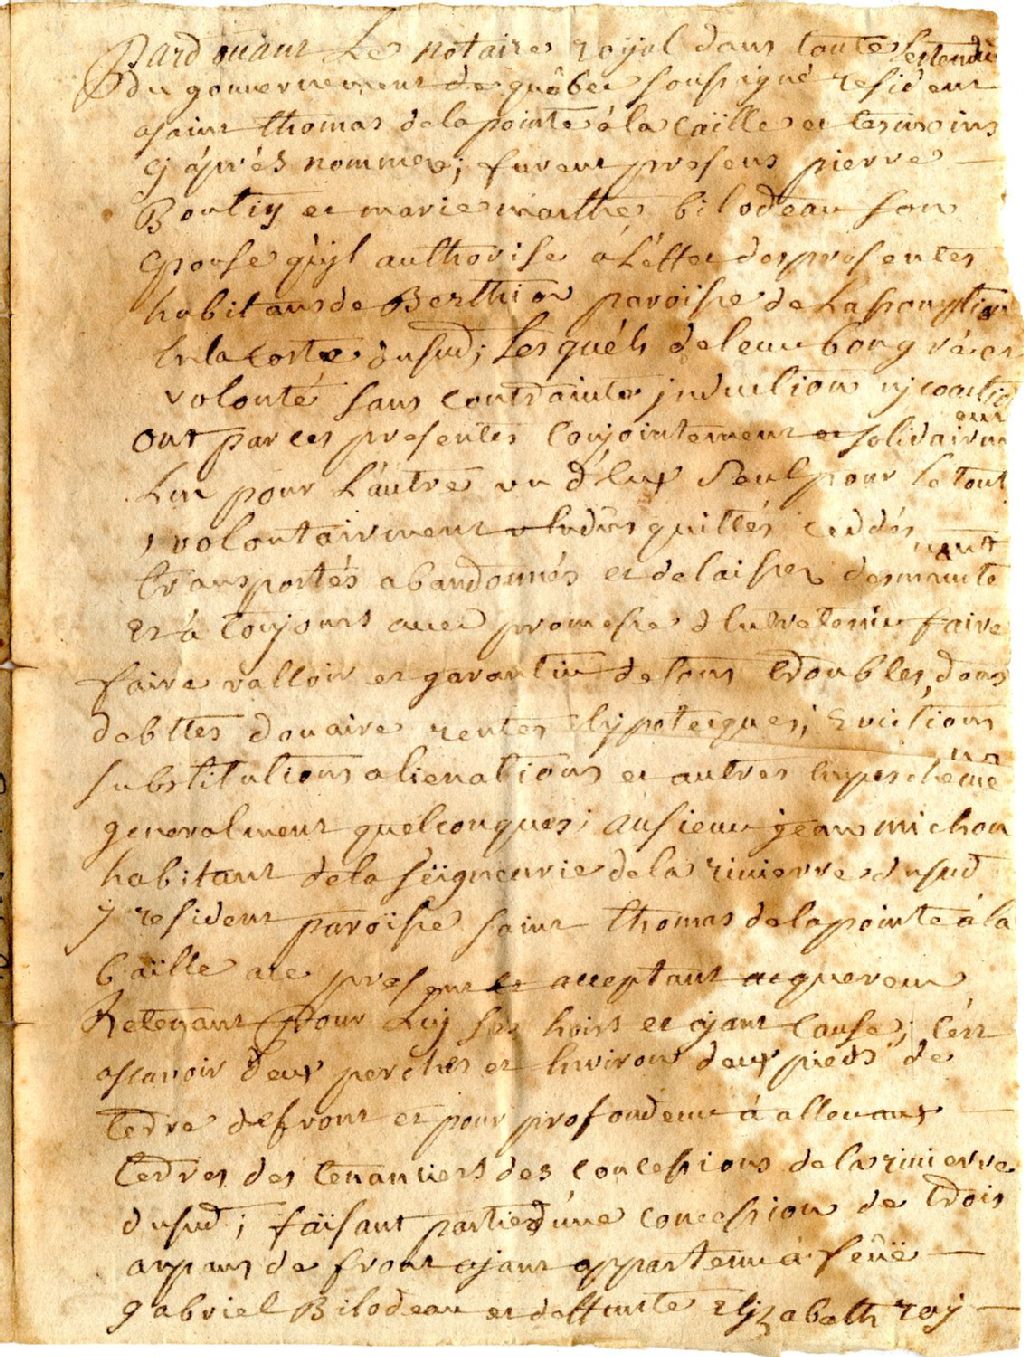 Pardevant Le notaire royal dans toutte Lestendue
du gouvernement de quebec soussigné résident
a saint thomas de la pointe à la caille et tesmoins
cy áprés nommez; furent presens pierre
Boutin et marie marthe bilodeau son
Epouse quyl authorise á L'effet des presentes
habitans de Berthier paroisse de Lassomption
En la coste du sud; Les quéls de leur bon gré et
volonté sans contrainte jnduction ny coactio
ont par ces presentes conjointement et solidairem
ent
Lun pour L'autre un d'Eux Seul pour le tout
volontairment vendus quittés ceddés
transportés abandonnés et delaissez desmainte
nant
et à toujours avec promesse d'Entretenir faire
faire valloir et garantir de tous troubles, dons
debttes douaire rentes hypotecques; Evictions
substitutions alienations et autres Empescheme
ns
generalment quelconques; au sieur jean michon
habitant de la seigneurie de la rivierre du sud
y resident paroisse saint thomas de la pointe à la
Caille a ce present et acceptant acquereur
Retenant pour Luy ses hoirs et ayant cause; C'est
ascavoir deux perches et Environ deux pieds de
terre de front et pour profondeur à aller aux
terres des tenanciers des concessions de la rivierre
du sud; faisant partie d'une concession de trois
arpans de front ayant appartenu à feüe
gabriel Bilodeau et deffunte Elyzabeth roy